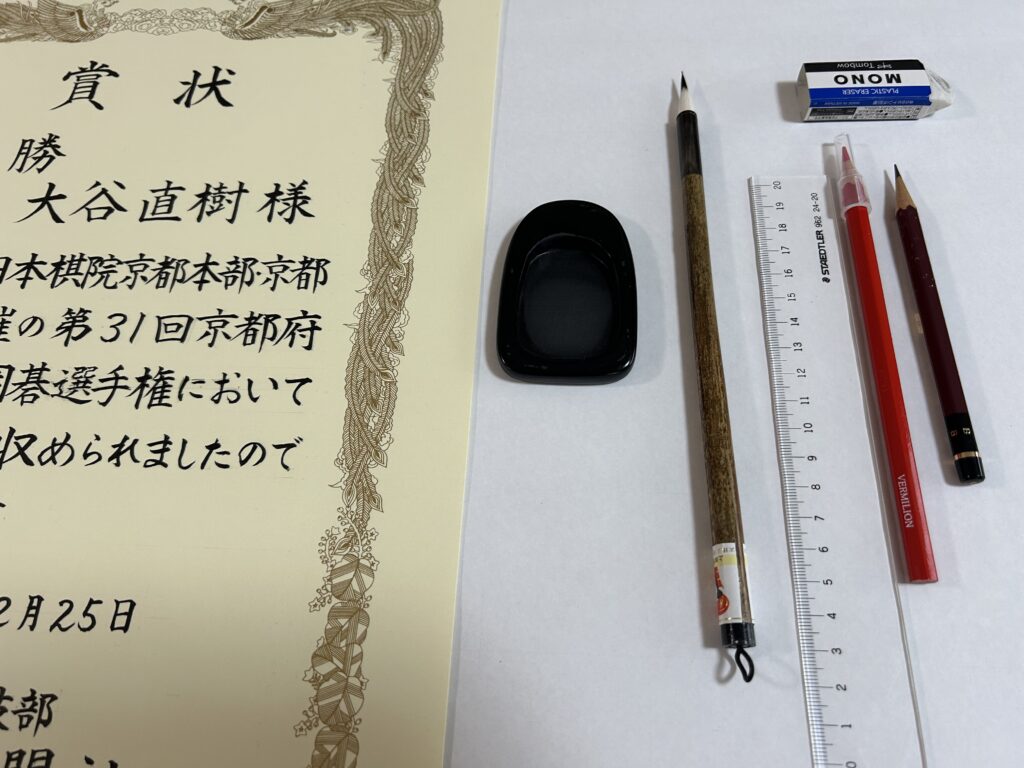 賞 状
勝
大谷直樹様
日本棋院京都本部・京都
催の第31回京都府
囲碁選手権において
収められましたので
2月25日
技部
聞社
Tombow
MONO
PLASTIC ERASER
STAEDTLER 962 24-20
20
19
18
17
16
15
14
13
12
11
10
9
8
7
6
5
4
3
2
1
0
VERMILION